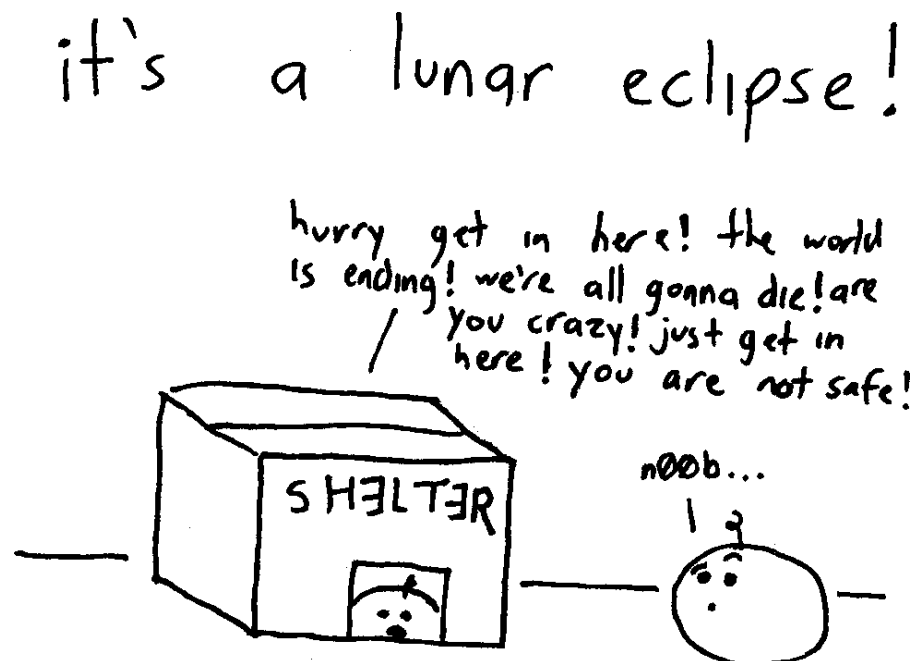 it's a lunar eclipse!
hurry get in here! the world
is ending! we're all gonna die! are
you crazy! just get in
here! you are not safe!
nØØb...
SHƎLTƎR